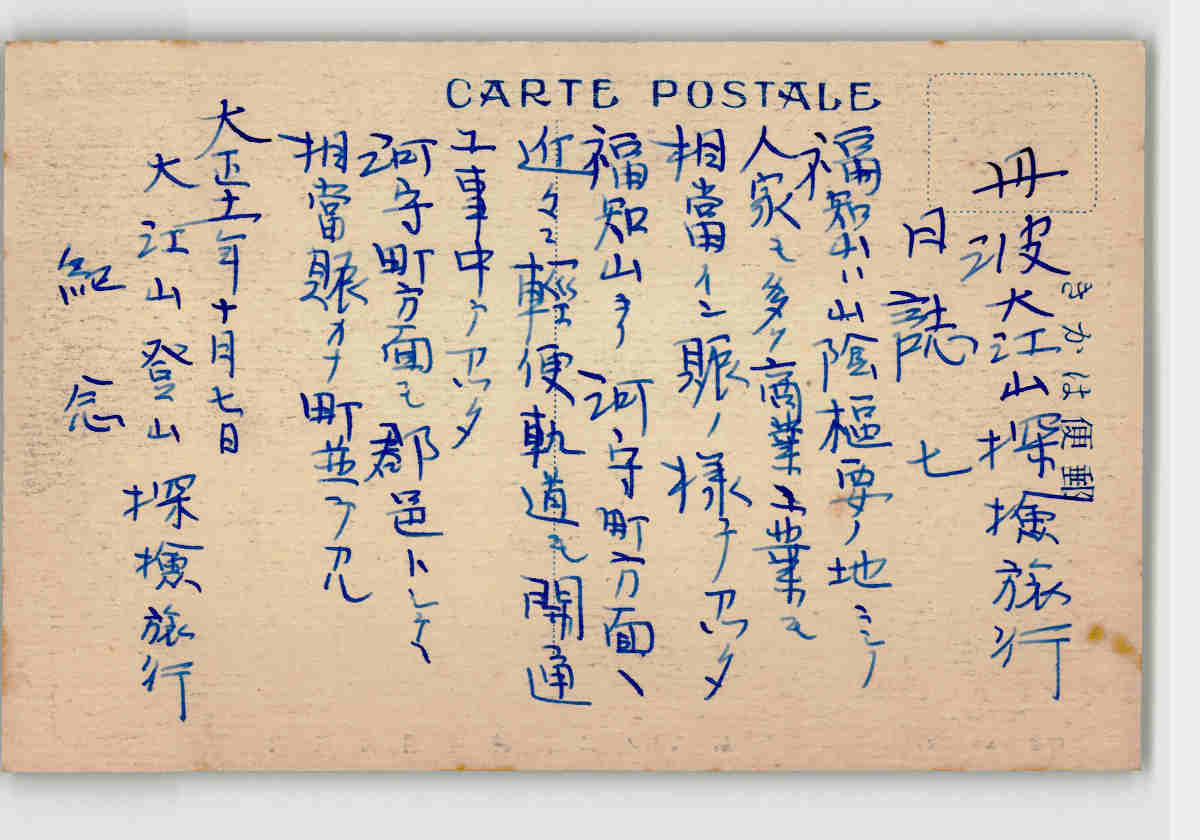 CARTE POSTALE
きかは便郵
丹波大江山探檢旅行
日誌 七
福知山ハ山陰樞要ノ地ニシテ
人家モ多ク商業工業モ
相當イン賑ノ様子ヲ見タ
福知山ヨリ河守町方面ヘ
近々ニ輕便軌道モ開通
工事中ヲ見タ
河守町方面モ郡邑トシテ
相當賑カナ町並ヲ見
大正十一年十月七日
大江山登山探檢旅行
紀念